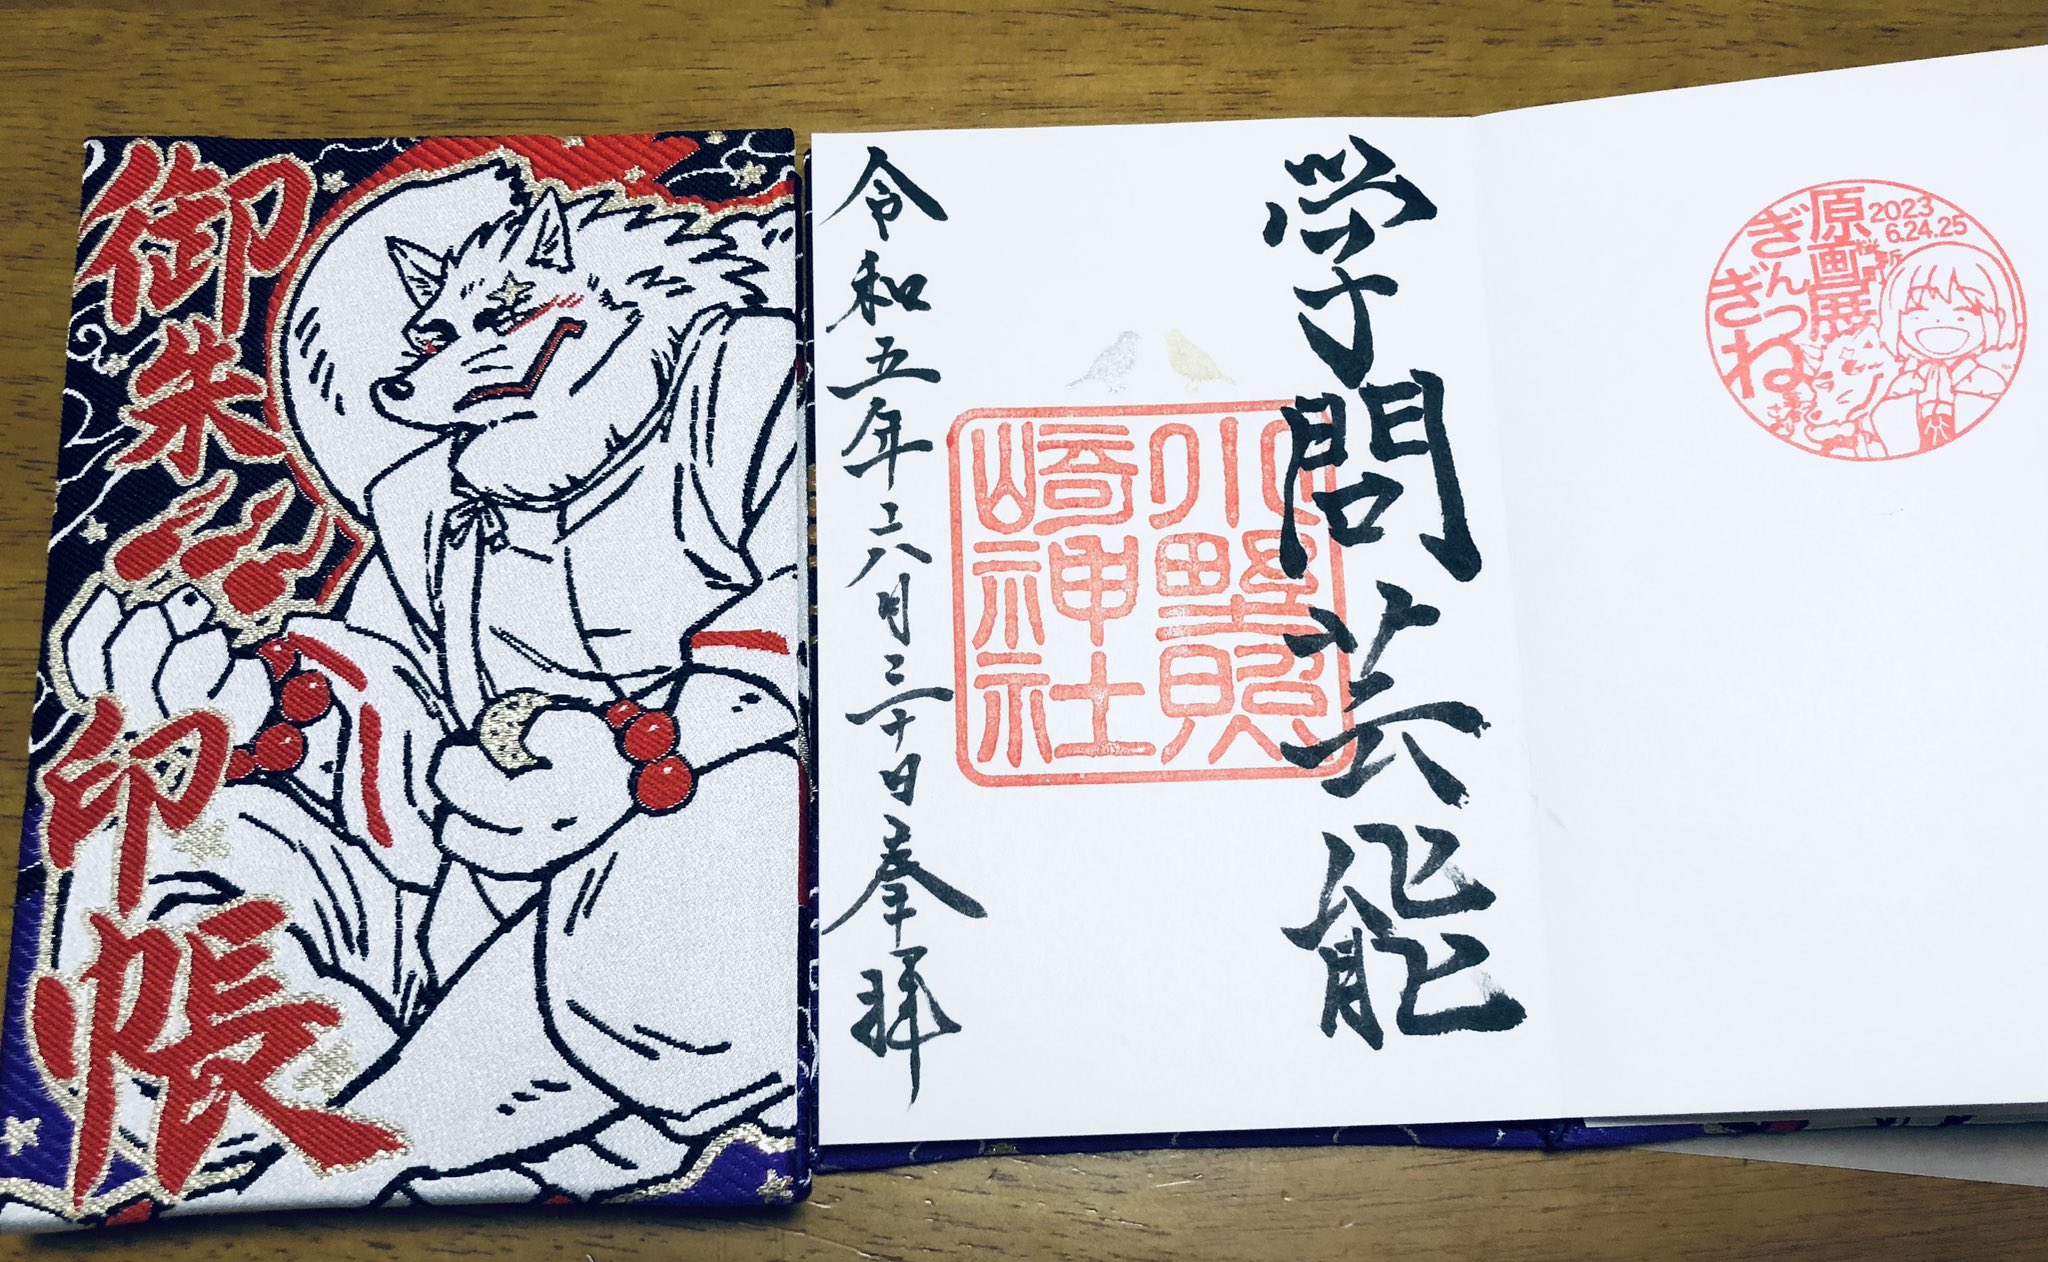 御朱印帳
学問芸能
小野照
崎神社
令和五年六月三十日奉拝
2023
6.24.25
原画展
ぎんぎつね